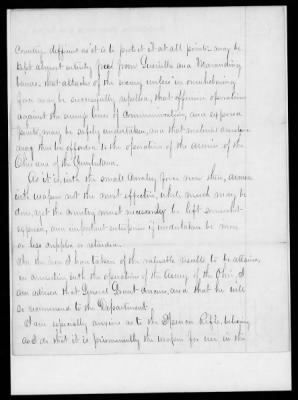 Country difficult as it is to protect it at all points may be
kept almost entirely freed from Guerrilla and Marauding
bands, that attacks of the enemy unless in overwhelming
force may be successfully repelled, that offensive operations
against the enemy's lines of communication, and exposed
points, may be safely undertaken, and that material assistance
may thus be afforded to the operations of the armies of the
Ohio and of the Cumberland.
As it is, with the small Cavalry force now here, armed
with weapons not the most effective, while much may be
done, yet the country must necessarily be left somewhat
exposed, and important enterprises if undertaken be more
or less crippled or retarded.
In the view I have taken of the valuable results to be attained,
in connection with the operations of the Army of the Ohio, I
am advised that General Grant concurs, and that he will
so recommend to the Department.
I am especially anxious as to the Spencer Rifle, believing
as I do that it is preeminently the weapon for use in the